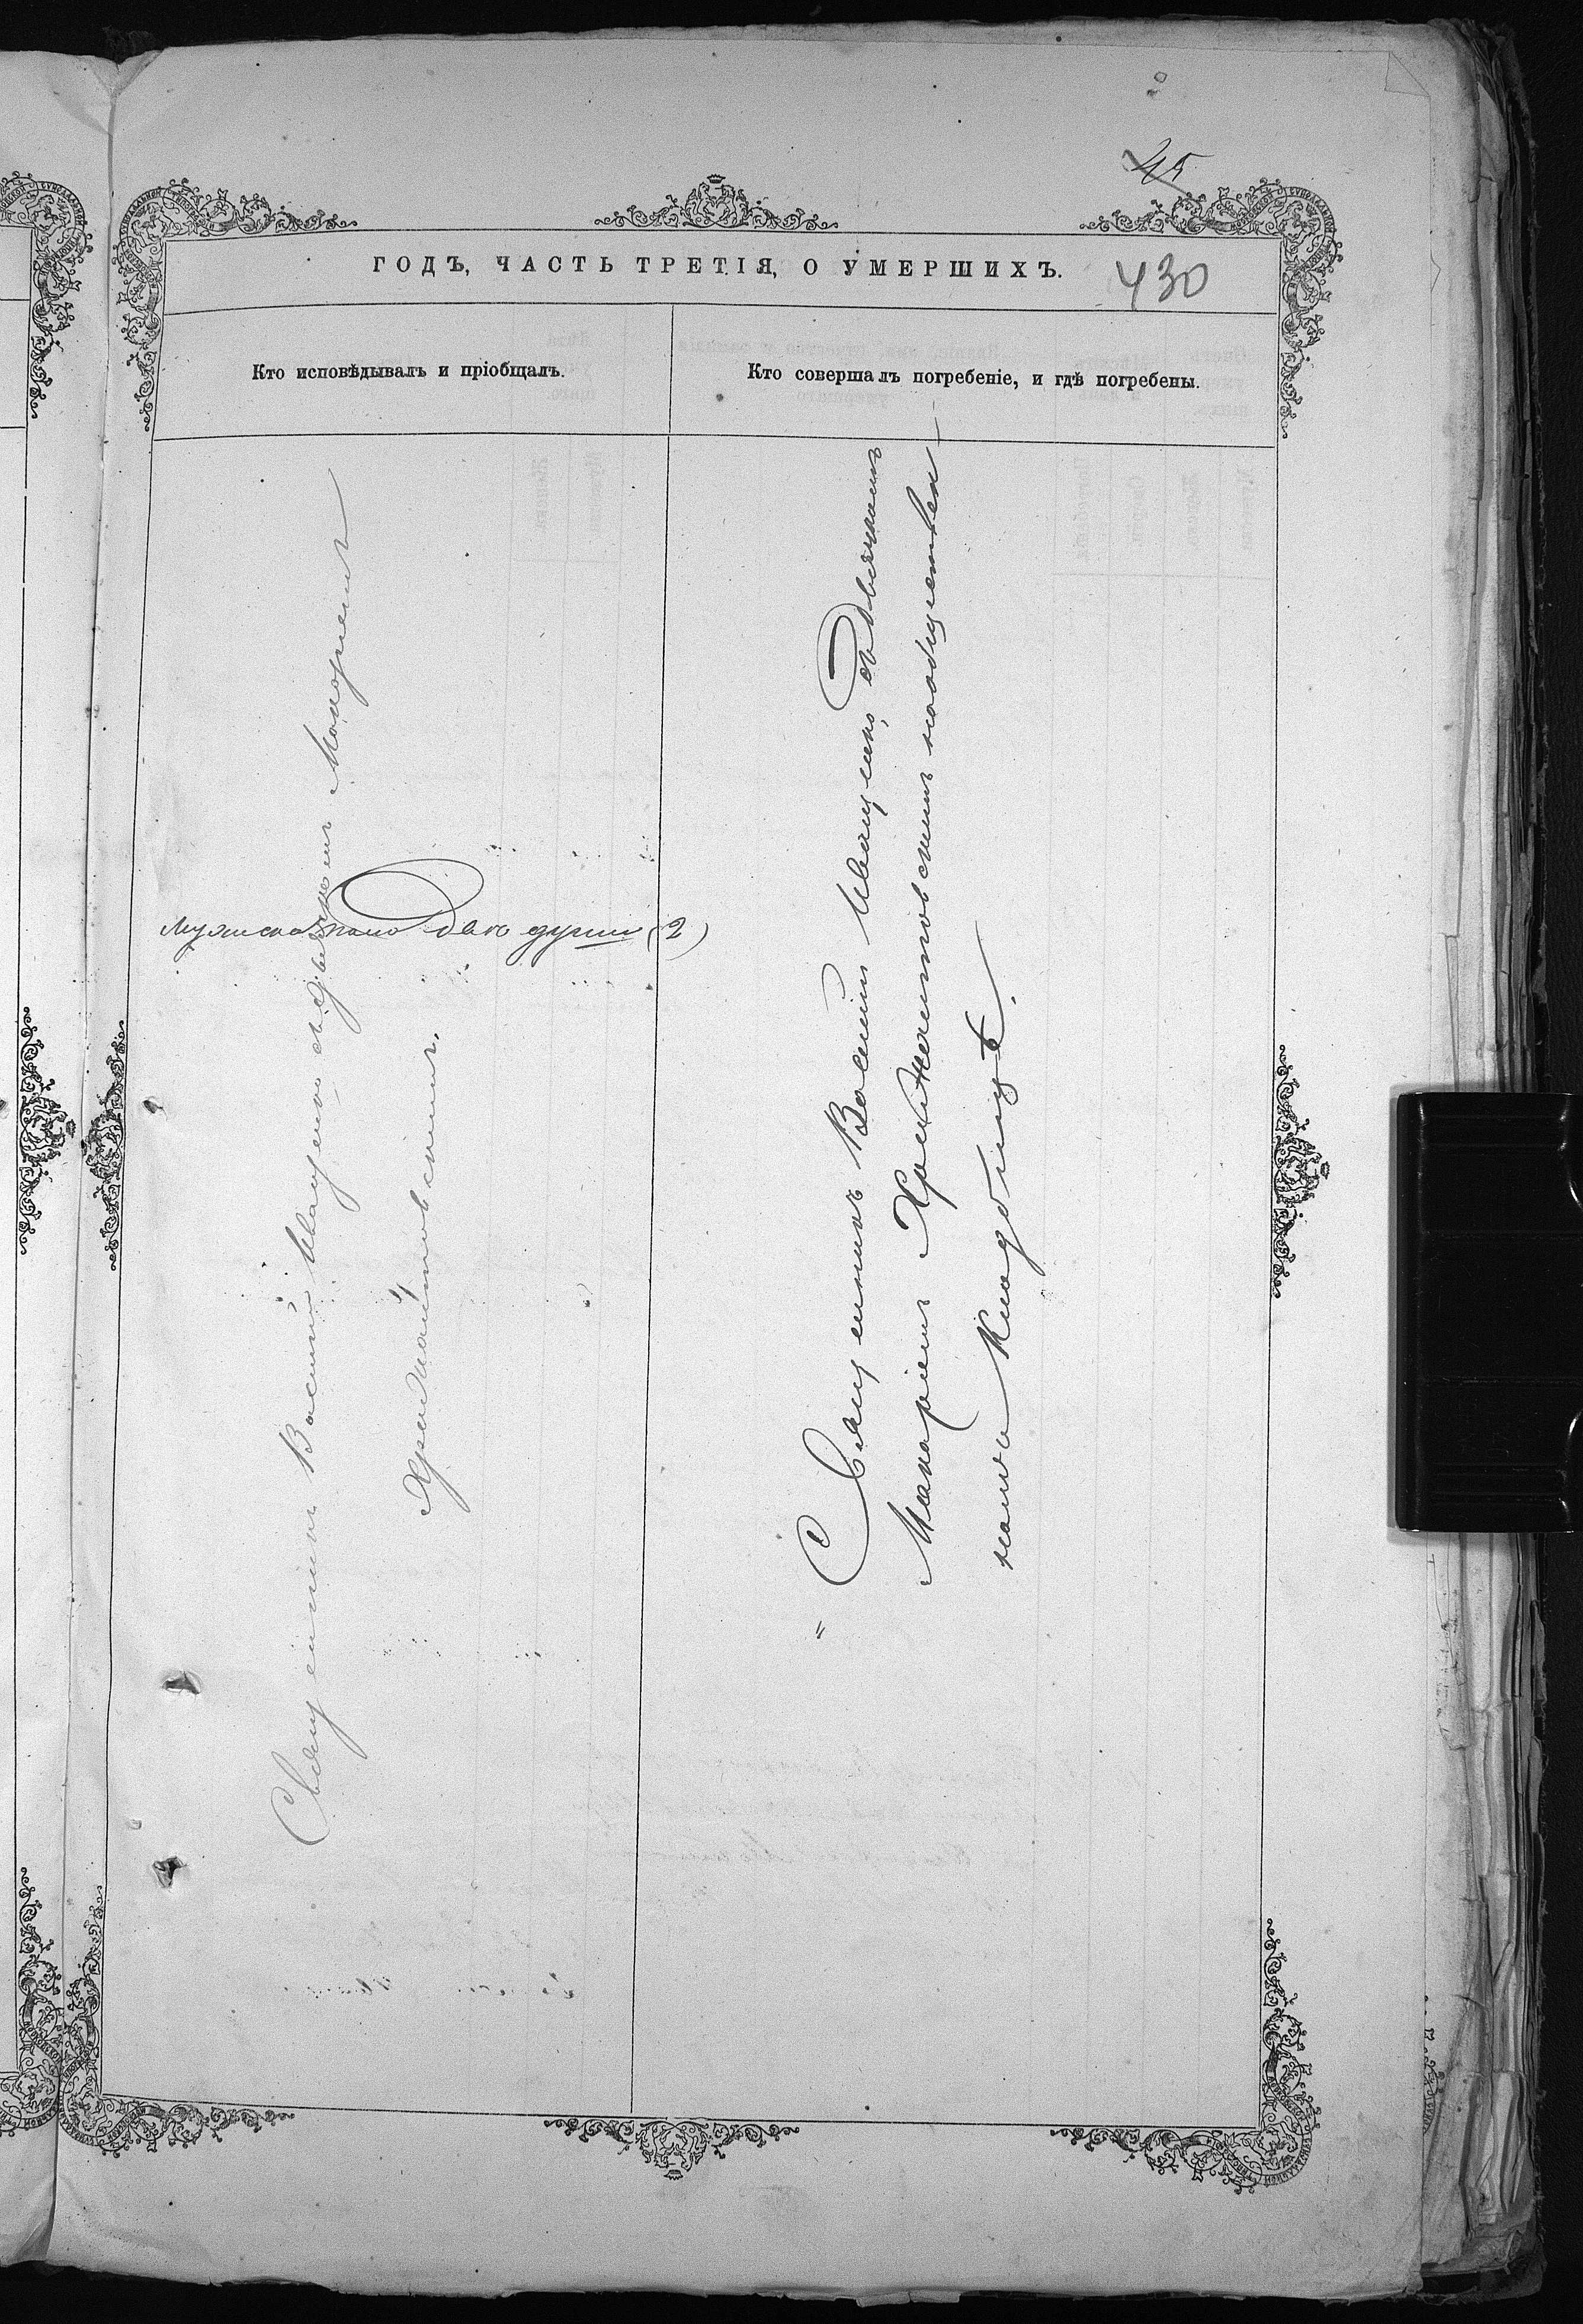 45
ГОДЪ, ЧАСТЬ ТРЕТІЯ, О УМЕРШИХЪ.
430
Кто исповѣдывалъ и пріобщалъ.
Кто совершалъ погребеніе, и гдѣ погребены.
Священникъ Василій Иващенко съ Дьячкомъ Макаріемъ
Храмлатовскимъ.
мужеска пола две души (2)
Священникъ Василій Иващенко, съ Дьячкомъ
Макаріемъ наобществен
номъ Кладбищѣ.